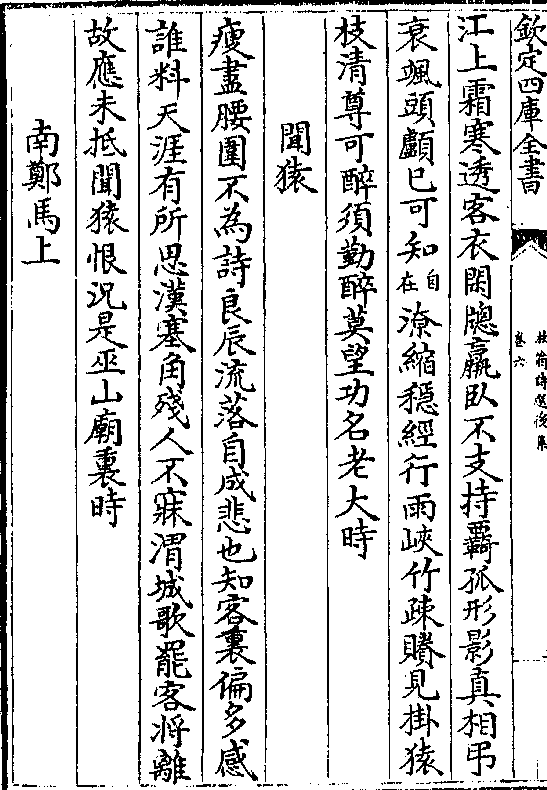 欽定四庫全書
卷六
江上霜寒透客衣閑牕羸臥不支持覊孤形影真相弔
衰颯頭顱已可知自在潦縮穩經行雨峽竹疎賸見掛猿
枝清尊可醉須勤醉莫望功名老大時
聞猿
瘦盡腰圍不為詩良辰流落自成悲也知客裏偏多感
誰料天涯有所思漢塞角殘人不寐渭城歌罷客將離
故應未抵聞猿恨況是巫山廟裏時
南鄭馬上